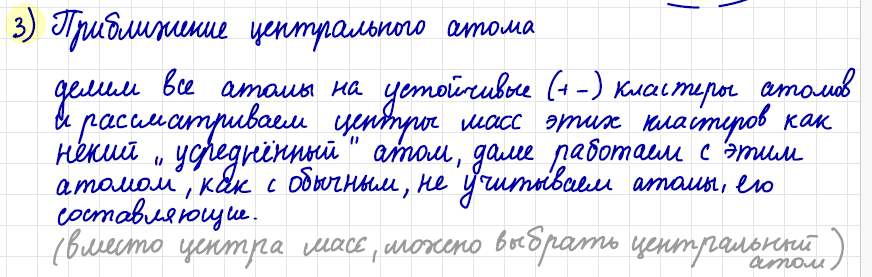 3) Приближение центрального атома
делим все атомы на устойчивые (+-) кластеры атомов
и рассматриваем центры масс этих кластеров как
некий „усреднённый" атом, далее работаем с этим
атомом, как с обычным, не учитываем атомы, его
составляющие.
(вместо центра масс, можно выбрать центральный
атом)